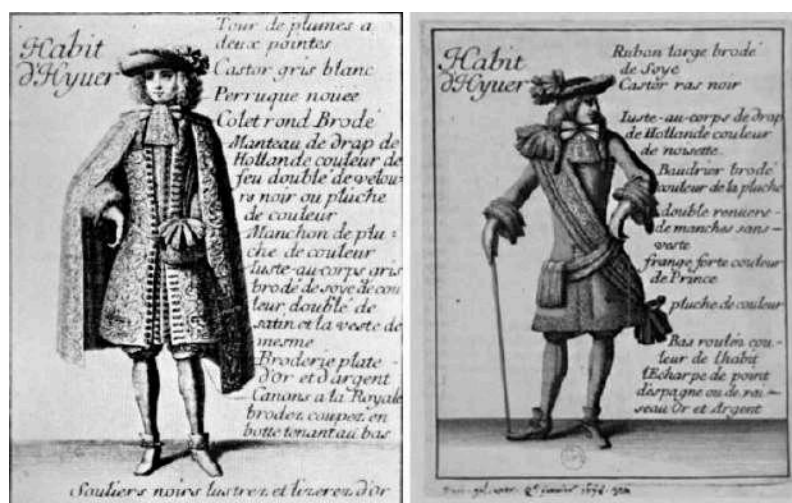 Habit
d'Hyuer
Tour de plumes a
deux pointes
Castor gris blanc
Perruque nouëe
Colet rond Brodé
Manteau de drap de
Hollande couleur de
feu doublé de velou-
rs noir ou pluche
de couleur
Manchon de plu-
che de couleur
Iuste-au-corps gris
brodé de soye de cou
leur, doublé de
satin et la veste de
mesme
Broderie plate
d'or et d'argent
Canons a la Royale
brodez, coupez, en
botte tenant au bas
Souliers noirs lustrez et lizerez d'or
Habit
d'Hyuer
Ruban large brodé
de Soye
Castor ras noir
Iuste-au-corps de drap
de Hollande couleur
de noisette
Baudrier brodé
couleur de la pluche
double renuers
de manches sans
veste
frange forte couleur
de Prince
pluche de couleur
Bas roulés cou-
leur de lhabit
lEcharpe de point
despagne ou de rai-
seau Or et Argent